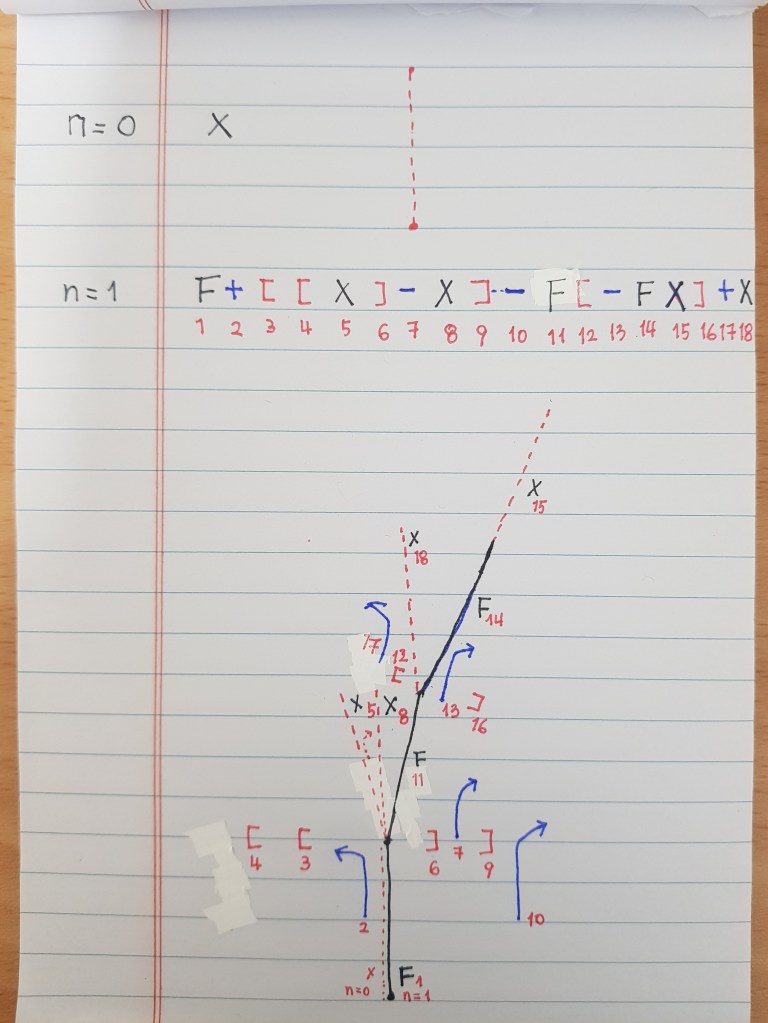 n=0 X
n=1 F+[[X]-X]--F[-FX]+X
1 2 3 4 5 6 7 8 9 10 11 12 13 14 15 16 17 18
X
15
X
18
F14
17 12
[
X5 X8
13 ]
16
F
11
[ [ ] ]
4 3 6 7 9
2 10
X F1
n=0 n=1